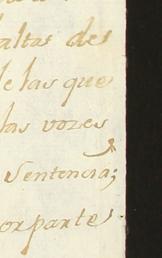 altas de
de las que
las vozes
Sentencia;
or parte